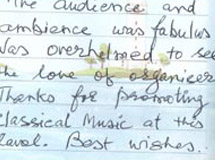 The audience and
ambience was fabulus
Was overhelmed to see
the love of organicer
Thanks for promoting
classical Music at this
laval. Best wishes..